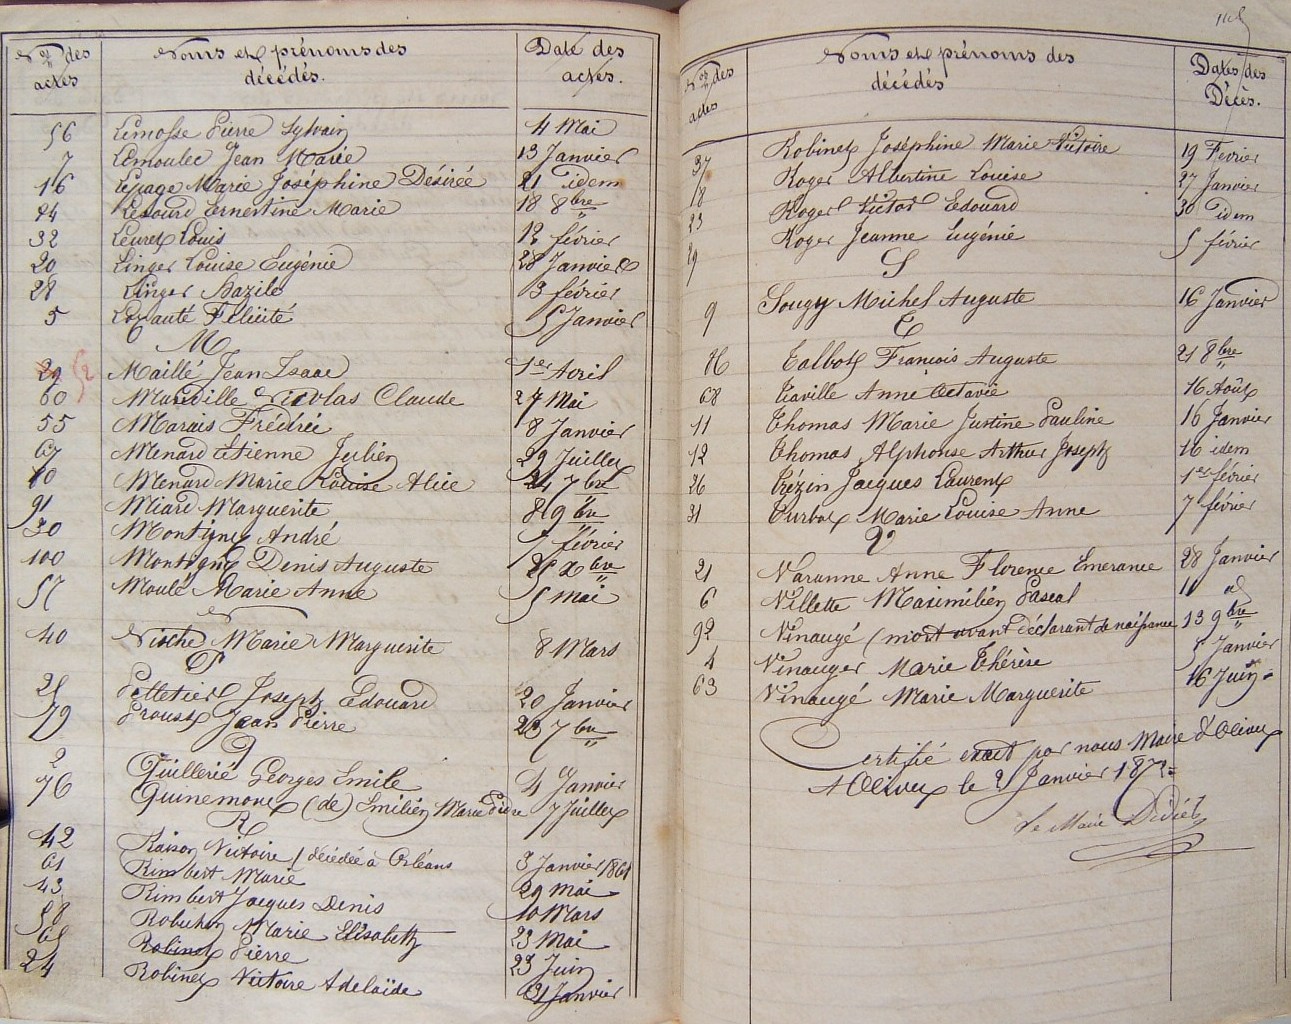 Nos des actes Noms et prénoms des décédés. Date des actes.
56 Lemosse Pierre Sylvain 4 Mai
7 Lemoulec Jean Marie 13 Janvier
16 Lepage Marie Joséphine Désirée 21 idem
84 Lesourd Ernestine Marie 18 8bre
32 Leuret Louis 12 février
20 Linger Louise Eugénie 28 Janvier
28 Linger Bazile 3 février
5 Loyauté Félicité 5 Janvier
M
29 52 Maillé Jean Isaac 1er Avril
60 Mandille Nicolas Claude 27 Mai
55 Marais Frédéric 8 Janvier
67 Menard Etienne Julien 29 Juillet
80 Menard Marie Louise Alice 24 7bre
91 Miard Marguerite 8 9bre
30 Montigny André 7 février
100 Montigny Denis Auguste 25 Xbre
57 Moulé Marie Anne 5 Mai
N
40 Nioche Marie Marguerite 8 Mars
P
25 Pelletier Joseph Edouard 20 Janvier
79 Proust Jean Pierre 23 7bre
Q
2 Quillerié Georges Emile 4 Janvier
76 Quinemont (de) Emilien Marie Pierre 7 Juillet
R
42 Raison Victoire / décédée à Orléans 3 Janvier 1861
61 Rimbert Marie 29 Mai
43 Rimbert Jacques Denis 10 Mars
58 Marie Elisabeth 23 Mai
65 Robinet Pierre 23 Juin
24 Robinet Victoire Adelaïde 31 Janvier
Nos des actes Noms et prénoms des décédés Dates des Décès.
37 Robinet Joséphine Marie Victoire 19 Fevrier
18 Roger Albertine Louise 27 Janvier
23 Roger Victor Edouard 30 idem
29 Roger Jeanne Eugénie 5 février
S
9 Sougy Michel Auguste 16 Janvier
T
86 Talbot François Auguste 21 8bre
68 Taville Anne Octavie 16 Août
11 Thomas Marie Justine Pauline 16 Janvier
12 Thomas Alphonse Arthur Joseph 16 idem
26 Trézin Jacques Laurent 1er février
31 Turbat Marie Louise Anne 7 février
V
21 Varanne Anne Florence Emerance 28 Janvier
6 Villette Maximilien Pascal 11 id
92 Vinaugé (mort avant déclarant de naissance 13 9bre
4 Vinauger Marie Thérèse 5 Janvier
63 Vinaugé Marie Marguerite 16 Juin
Certifié exact par nous Maire d'Olivet
A Olivet le 2 Janvier
Le Maire